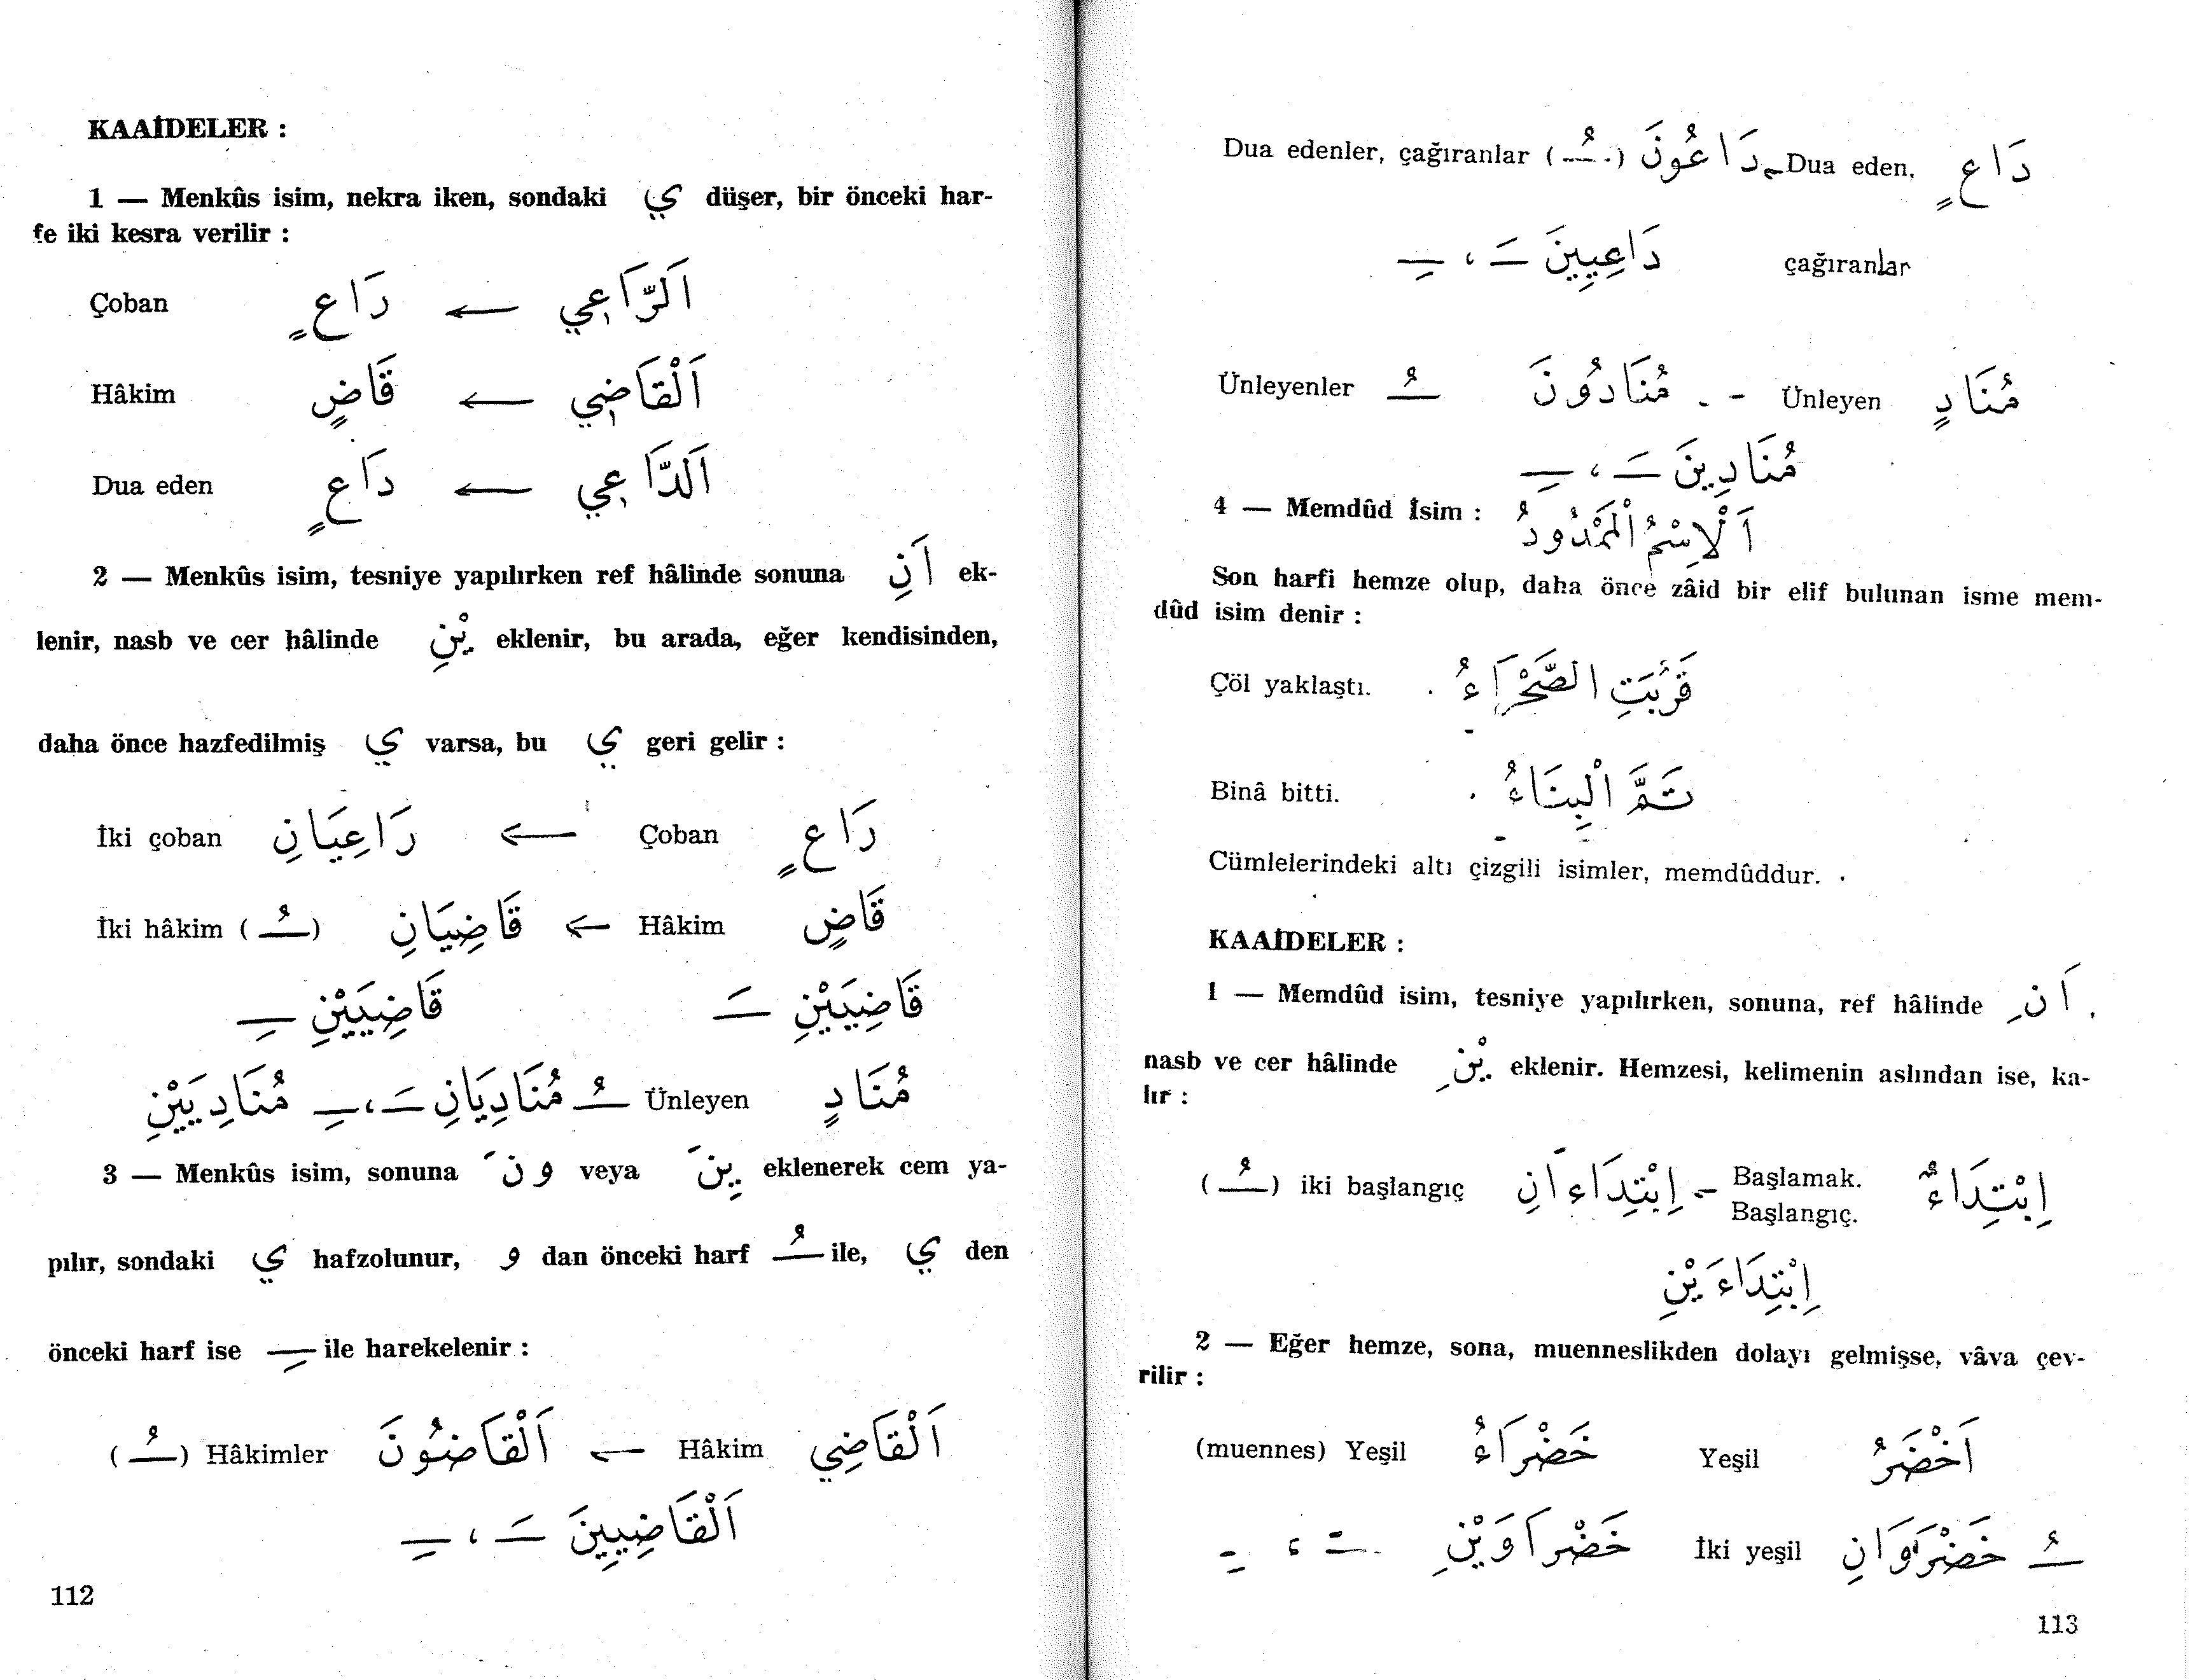 KAAİDELER :
1 — Menkûs isim, nekra iken, sondaki ي düşer, bir önceki har-
fe iki kesra verilir :
Çoban رَاعٍ ← اَلرَّاعِي
Hâkim قَاضٍ ← اَلْقَاضِي
Dua eden دَاعٍ ← اَلدَّاعِي
2 — Menkûs isim, tesniye yapılırken ref hâlinde sonuna اَنِ ek-
lenir, nasb ve cer hâlinde يْنِ eklenir, bu arada, eğer kendisinden,
daha önce hazfedilmiş ي varsa, bu ي geri gelir :
İki çoban رَاعِيَانِ ← Çoban رَاعٍ
İki hâkim (ـُ) قَاضِيَانِ ← Hâkim قَاضٍ
ـِ قَاضِيَيْنِ ـَ قَاضِيَيْنِ
مُنَادِيَيْنِ ـَ ، ـِ مُنَادِيَانِ ـُ Ünleyen مُنَادٍ
3 — Menkûs isim, sonuna َ ون veya ِينَ eklenerek cem ya-
pılır, sondaki ي hafzolunur, و dan önceki harf ـُ ile, ي den
önceki harf ise ـِ ile harekelenir :
(ـُ) Hâkimler اَلْقَاضُونَ ← Hâkim اَلْقَاضِي
اَلْقَاضِيِينَ ـَ ، ـِ
112
Dua edenler, çağıranlar (ـُ) دَاعُونَ ← Dua eden, دَاعٍ
دَاعِيِينَ ـَ ، ـِ çağıranlar
Ünleyenler ـُ مُنَادُونَ - Ünleyen مُنَادٍ
مُنَادِينَ ـَ ، ـِ
4 — Memdûd İsim : اَلْاِسْمُ الْمَمْدُودُ
Son harfi hemze olup, daha önce zâid bir elif bulunan isme mem-
dûd isim denir :
Çöl yaklaştı. قَرُبَتِ الصَّحْرَاءُ .
Binâ bitti. تَمَّ الْبِنَاءُ .
Cümlelerindeki altı çizgili isimler, memdûddur.
KAAİDELER :
1 — Memdûd isim, tesniye yapılırken, sonuna, ref hâlinde اَنِ ,
nasb ve cer hâlinde يْنِ eklenir. Hemzesi, kelimenin aslından ise, ka-
lır :
(ـُ) iki başlangıç اِبْتِدَاءَانِ ← Başlamak. اِبْتِدَاءٌ
Başlangıç.
اِبْتِدَاءَيْنِ
2 — Eğer hemze, sona, muenneslikden dolayı gelmişse, vâva çev-
rilir :
(muennes) Yeşil خَضْرَاءُ Yeşil اَخْضَرُ
ـِ ، ـَ خَضْرَاوَيْنِ İki yeşil خَضْرَاوَانِ ـُ
113